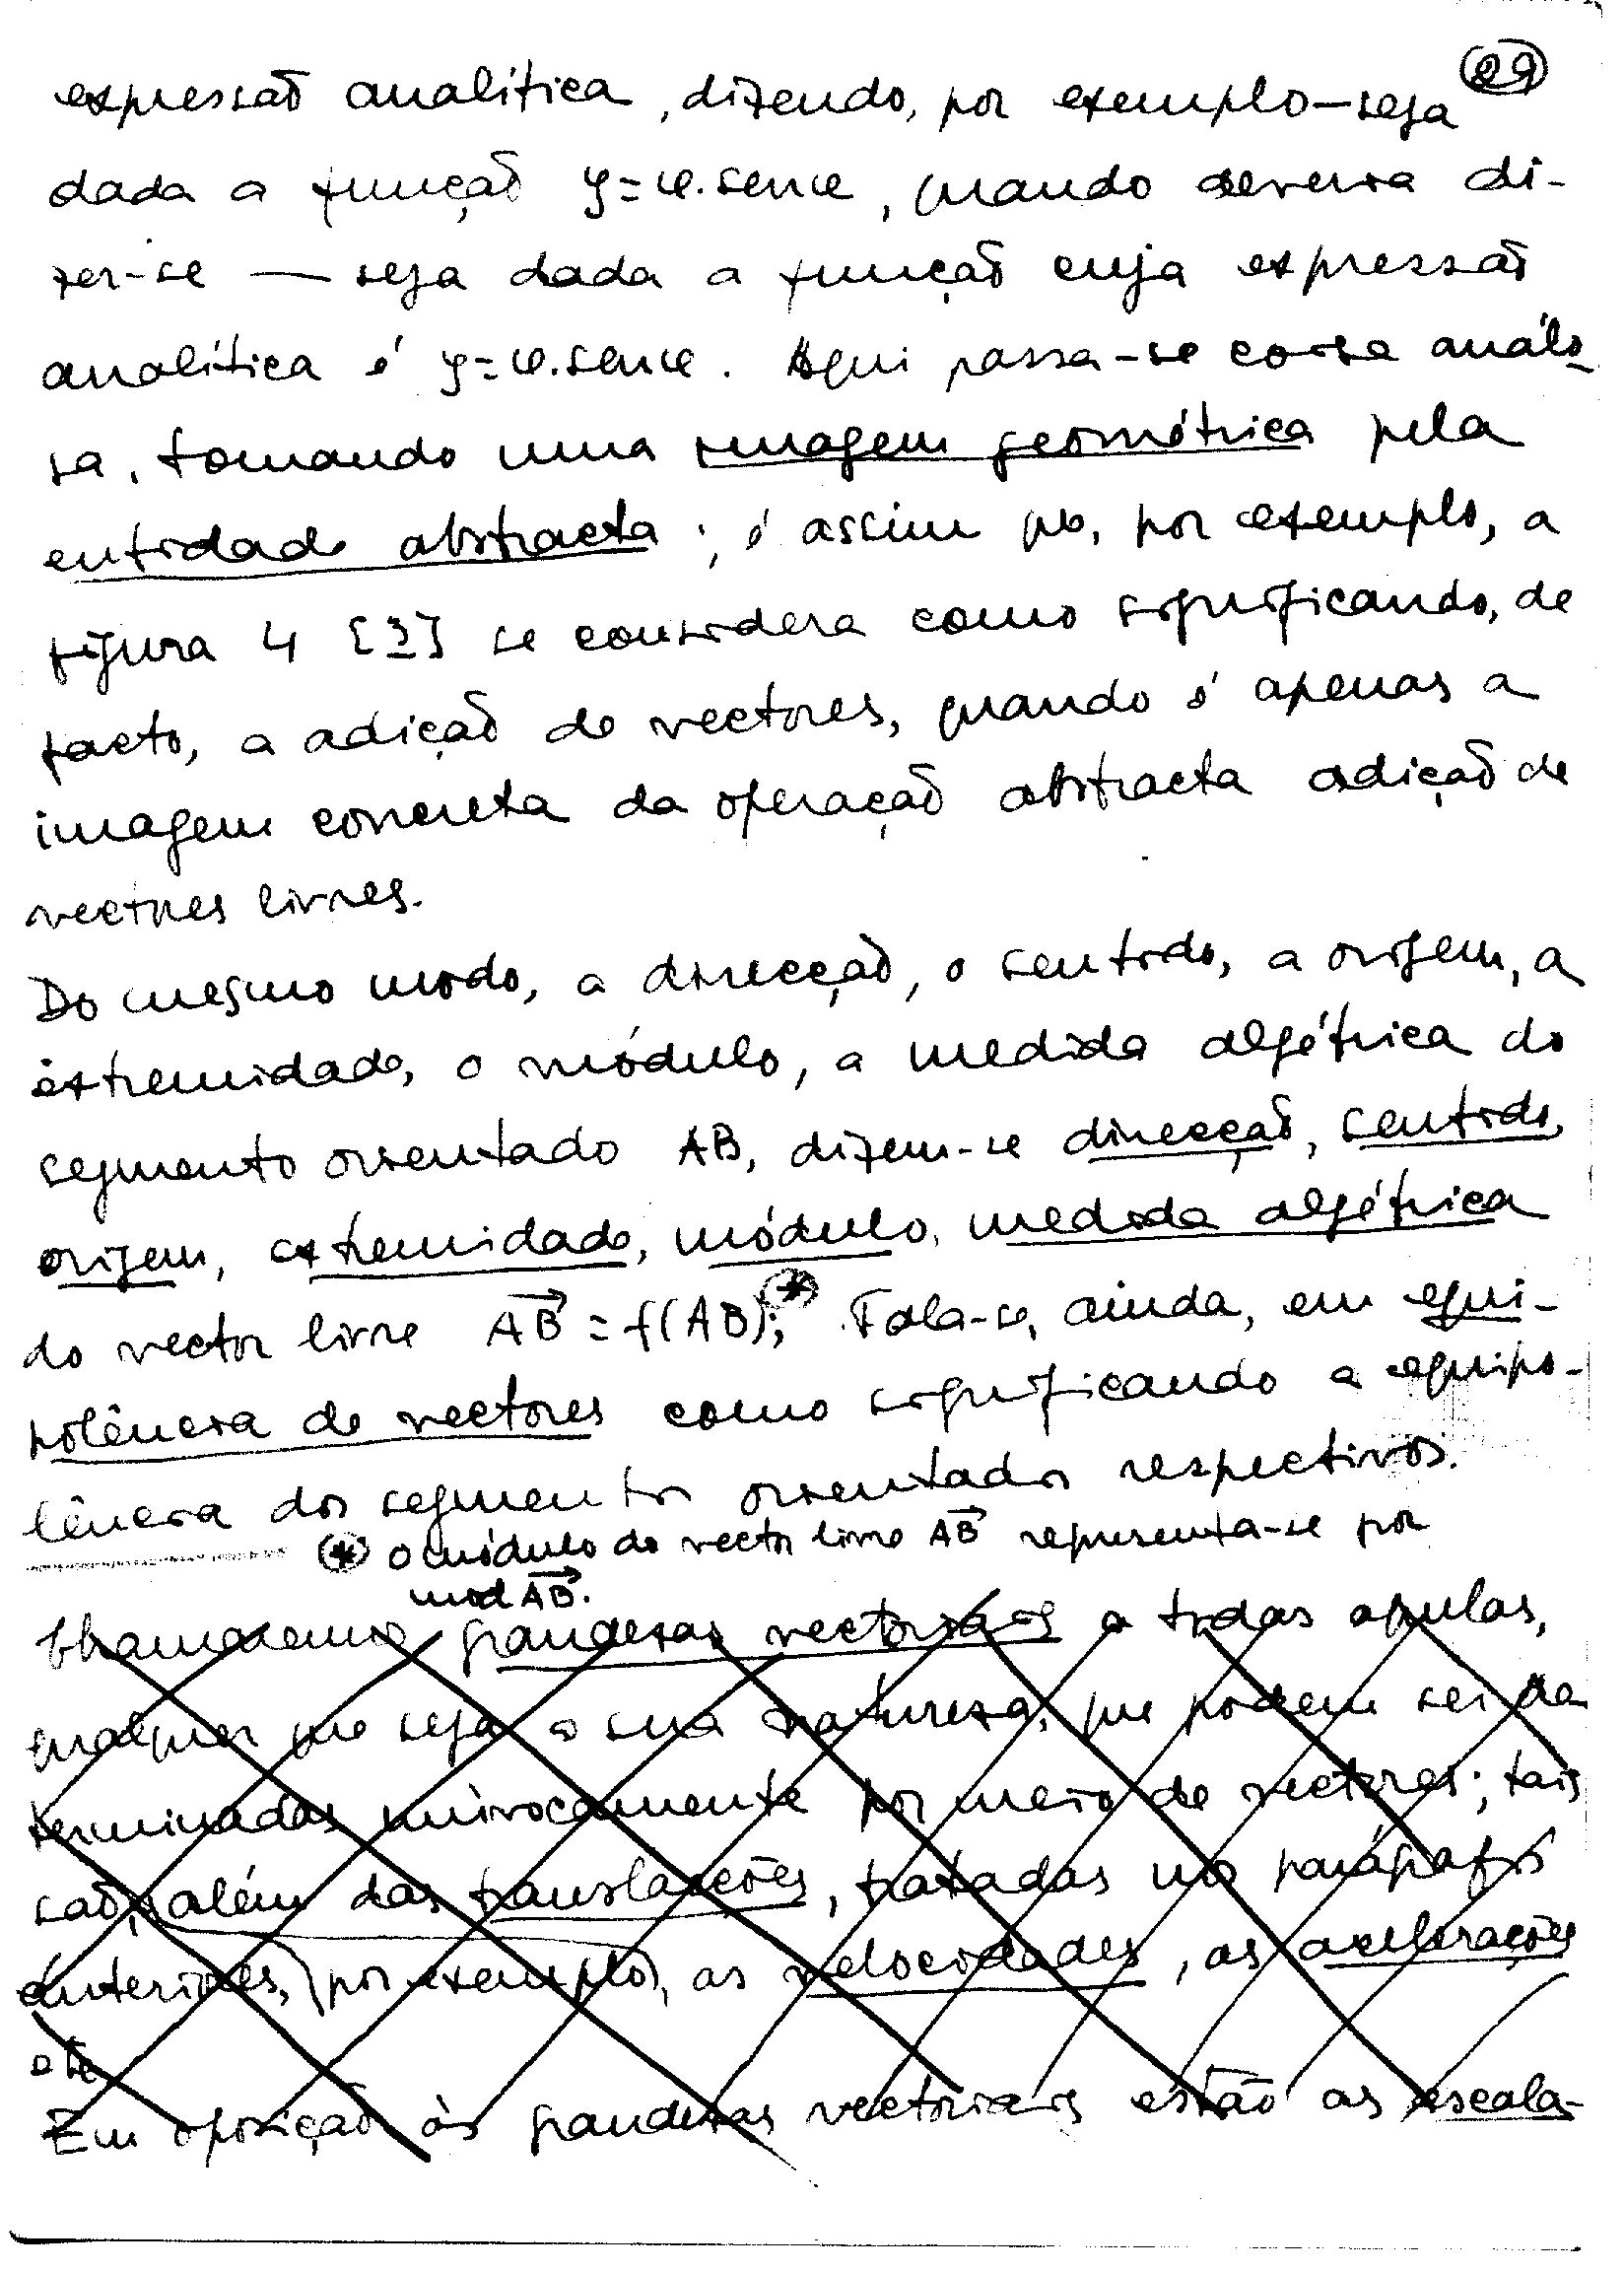 29
expressão analítica, dizendo, por exemplo — seja
dada a função y=x.senx, quando deveria di-
zer-se — seja dada a função cuja expressão
analítica é y=x.senx. Aqui passa-se coisa análo-
ga, tomando uma imagem geométrica pela
entidade abstracta; é assim que, por exemplo, a
figura 4 [3] se considera como significando, de
facto, a adição de vectores, quando é apenas a
imagem concreta da operação abstracta adição de
vectores livres.
Do mesmo modo, a direcção, o sentido, a origem, a
extremidade, o módulo, a medida algébrica do
segmento orientado AB, dizem-se direcção, sentido,
origem, extremidade, módulo, medida algébrica
do vector livre AB = f(AB);(*) Fala-se, ainda, em equi-
polência de vectores como significando a equipo-
lência dos segmentos orientados respectivos.
(*) O módulo do vector livre AB representa-se por
mod AB.
Chamaremos grandezas vectoriais a todas aquelas,
qualquer que seja a sua natureza, que podem ser de
terminadas univocamente por meio de vectores; tais
são, além das translações, tratadas nos parágrafos
anteriores, por exemplo, as velocidades, as acelerações
etc.
Em oposição às grandezas vectoriais estão as escala-